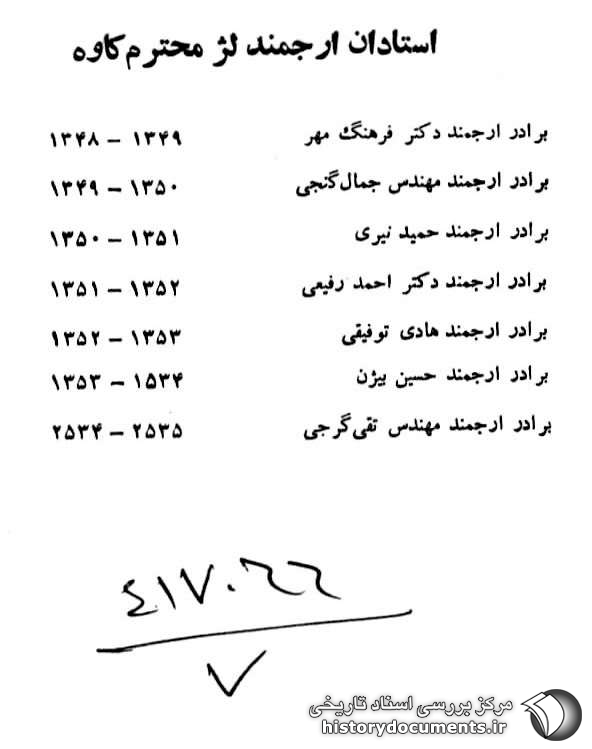 استادان ارجمند لژ محترم کاوه
برادر ارجمند دکتر فرهنگ مهر ۱۳۴۸ – ۱۳۴۹
برادر ارجمند مهندس جمال گنجی ۱۳۴۹ – ۱۳۵۰
برادر ارجمند حمید نیری ۱۳۵۰ – ۱۳۵۱
برادر ارجمند دکتر احمد رفیعی ۱۳۵۱ – ۱۳۵۲
برادر ارجمند هادی توفیقی ۱۳۵۲ – ۱۳۵۳
برادر ارجمند حسین بیژن ۱۳۵۳ – ۱۵۳۴
برادر ارجمند مهندس تقی گرجی ۲۵۳۴ – ۲۵۳۵
٤۱۷۰٦٦
۷
مرکز بررسی اسناد تاریخی
historydocuments.ir